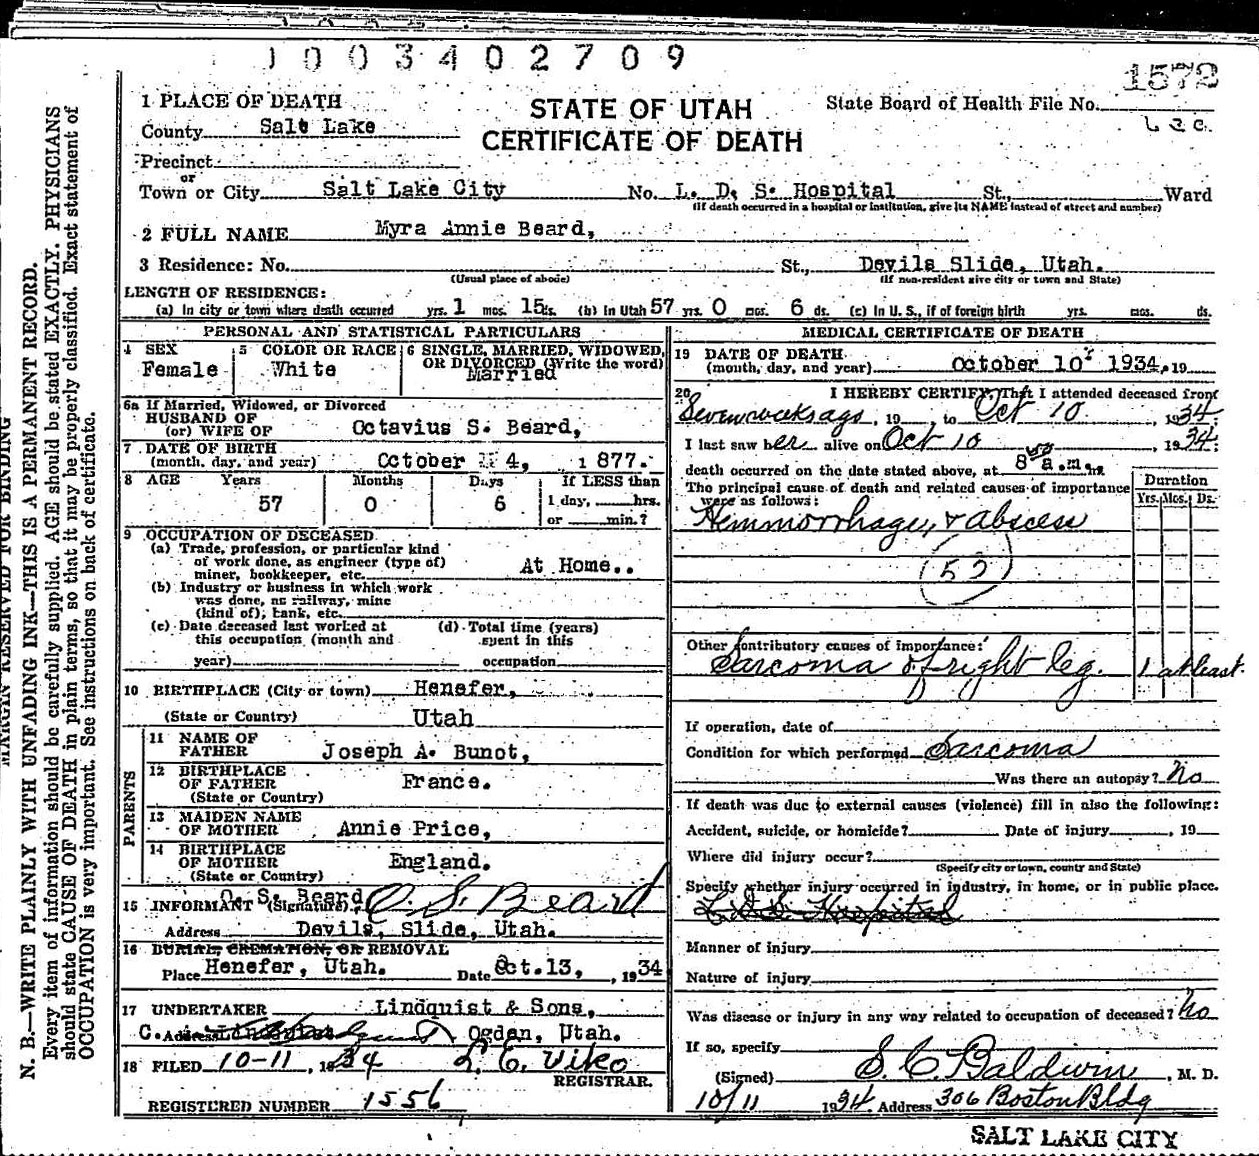 1003402709
1572
1 PLACE OF DEATH
STATE OF UTAH
State Board of Health File No.
County Salt Lake
CERTIFICATE OF DEATH
Precinct
or
Town or City Salt Lake City No. L. D. S. Hospital St., Ward
(If death occurred in a hospital or institution, give its NAME instead of street and number)
2 FULL NAME Myra Annie Beard,
3 Residence: No. St., Devils Slide, Utah.
(Usual place of abode) (If non-resident give city or town and State)
LENGTH OF RESIDENCE:
(a) In city or town where death occurred yrs. 1 mos. 15 ds. (b) In Utah 57 yrs. 0 mos. 6 ds. (c) In U. S., if of foreign birth yrs. mos. ds.
PERSONAL AND STATISTICAL PARTICULARS
4 SEX 5 COLOR OR RACE 6 SINGLE, MARRIED, WIDOWED,
OR DIVORCED (Write the word)
Female White Married
6a If Married, Widowed, or Divorced
HUSBAND OF
(or) WIFE OF Octavius S. Beard,
7 DATE OF BIRTH
(month, day, and year) October 4, 1877.
8 AGE Years Months Days If LESS than
57 0 6 1 day, hrs.
or min.?
9 OCCUPATION OF DECEASED
(a) Trade, profession, or particular kind
of work done, as engineer (type of)
miner, bookkeeper, etc. At Home..
(b) Industry or business in which work
was done, as railway, mine
(kind of), bank, etc.
(c) Date deceased last worked at (d) Total time (years)
this occupation (month and spent in this
year) occupation
10 BIRTHPLACE (City or town) Henefer,
(State or Country) Utah
PARENTS
11 NAME OF
FATHER Joseph A. Bunot,
12 BIRTHPLACE
OF FATHER France.
(State or Country)
13 MAIDEN NAME
OF MOTHER Annie Price,
14 BIRTHPLACE
OF MOTHER England.
(State or Country)
O. S. Beard
15 INFORMANT (Signature) O. S. Beard
Address Devils, Slide, Utah.
16 BURIAL, CREMATION, OR REMOVAL
Place Henefer, Utah. Date Oct.13, , 1934
17 UNDERTAKER Lindquist & Sons,
C. Address Ogden, Utah.
18 FILED 10-11, 1934 L. E. Viko
REGISTRAR.
REGISTERED NUMBER 1556
MEDICAL CERTIFICATE OF DEATH
19 DATE OF DEATH
(month, day, and year) October 10 1934, 19
20 I HEREBY CERTIFY, That I attended deceased from
Seven weeks ago, 19 , to Oct 10, 1934
I last saw her alive on Oct 10, 1934;
death occurred on the date stated above, at 8 50 a.m. m
The principal cause of death and related causes of importance
were as follows:
Duration
Yrs. Mos. Ds.
Hemmorrhage, & abscess
(53)
Other contributory causes of importance:
Sarcoma of right leg. 1 at least.
If operation, date of
Condition for which performed Sarcoma
Was there an autopsy? No
If death was due to external causes (violence) fill in also the following:
Accident, suicide, or homicide? Date of injury , 19
Where did injury occur?
(Specify city or town, county and State)
Specify whether injury occurred in industry, in home, or in public place.
L.D.S. Hospital
Manner of injury
Nature of injury
Was disease or injury in any way related to occupation of deceased? No
If so, specify
(Signed) S. C. Baldwin, M. D.
10/11 1934 Address 306 Boston Bldg
SALT LAKE CITY
MARGIN RESERVED FOR BINDING
N. B.—WRITE PLAINLY WITH UNFADING INK—THIS IS A PERMANENT RECORD.
Every item of information should be carefully supplied. AGE should be stated EXACTLY. PHYSICIANS
should state CAUSE OF DEATH in plain terms, so that it may be properly classified. Exact statement of
OCCUPATION is very important. See instructions on back of certificate.